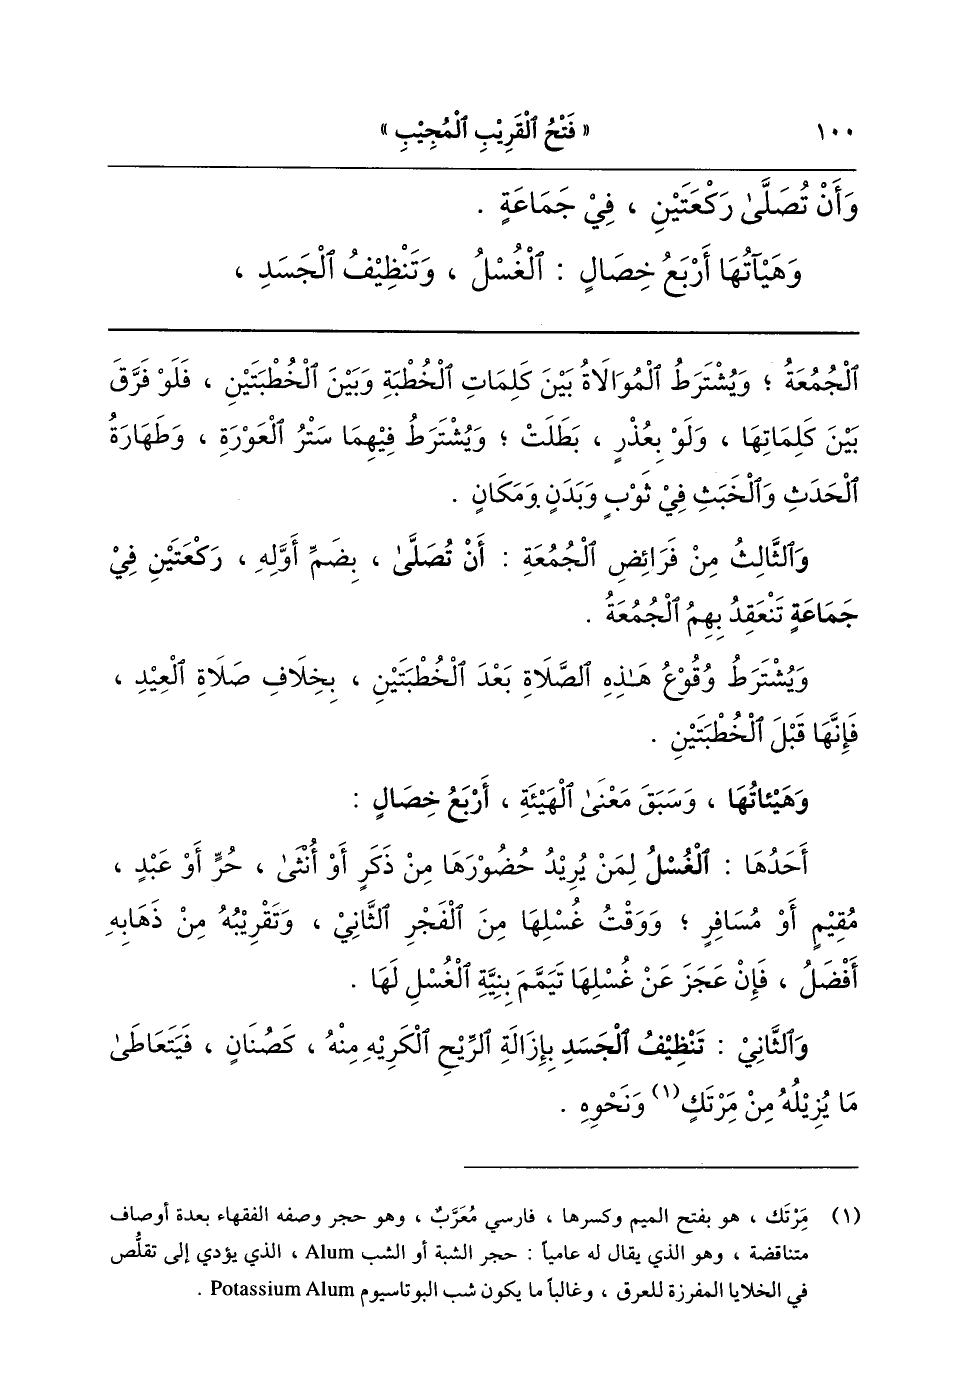 ١٠٠ « فَتْحُ ٱلْقَرِيْبِ ٱلْمُجِيْبِ »
وَأَنْ تُصَلَّىٰ رَكْعَتَيْنِ ، فِيْ جَمَاعَةٍ .
وَهَيْآتُهَا أَرْبَعُ خِصَالٍ : ٱلْغُسْلُ ، وَتَنْظِيْفُ ٱلْجَسَدِ ،
ٱلْجُمُعَةُ ؛ وَيُشْتَرَطُ ٱلْمُوَالَاةُ بَيْنَ كَلِمَاتِ ٱلْخُطْبَةِ وَبَيْنَ ٱلْخُطْبَتَيْنِ ، فَلَوْ فَرَّقَ
بَيْنَ كَلِمَاتِهَا ، وَلَوْ بِعُذْرٍ ، بَطَلَتْ ؛ وَيُشْتَرَطُ فِيْهِمَا سَتْرُ ٱلْعَوْرَةِ ، وَطَهَارَةُ
ٱلْحَدَثِ وَٱلْخَبَثِ فِيْ ثَوْبٍ وَبَدَنٍ وَمَكَانٍ .
وَٱلثَّالِثُ مِنْ فَرَائِضِ ٱلْجُمُعَةِ : أَنْ تُصَلَّىٰ ، بِضَمِّ أَوَّلِهِ ، رَكْعَتَيْنِ فِيْ
جَمَاعَةٍ تَنْعَقِدُ بِهِمُ ٱلْجُمُعَةُ .
وَيُشْتَرَطُ وُقُوْعُ هَـٰذِهِ ٱلصَّلَاةِ بَعْدَ ٱلْخُطْبَتَيْنِ ، بِخِلَافِ صَلَاةِ ٱلْعِيْدِ ،
فَإِنَّهَا قَبْلَ ٱلْخُطْبَتَيْنِ .
وَهَيْئاتُهَا ، وَسَبَقَ مَعْنَىٰ ٱلْهَيْئَةِ ، أَرْبَعُ خِصَالٍ :
أَحَدُهَا : ٱلْغُسْلُ لِمَنْ يُرِيْدُ حُضُوْرَهَا مِنْ ذَكَرٍ أَوْ أُنْثَىٰ ، حُرٍّ أَوْ عَبْدٍ ،
مُقِيْمٍ أَوْ مُسَافِرٍ ؛ وَوَقْتُ غُسْلِهَا مِنَ ٱلْفَجْرِ ٱلثَّانِيْ ، وَتَقْرِيْبُهُ مِنْ ذَهَابِهِ
أَفْضَلُ ، فَإِنْ عَجَزَ عَنْ غُسْلِهَا تَيَمَّمَ بِنِيَّةِ ٱلْغُسْلِ لَهَا .
وَٱلثَّانِيْ : تَنْظِيْفُ ٱلْجَسَدِ بِإِزَالَةِ ٱلرِّيْحِ ٱلْكَرِيْهِ مِنْهُ ، كَصُنَانٍ ، فَيَتَعَاطَىٰ
مَا يُزِيْلُهُ مِنْ مَرْتَكٍ(١) وَنَحْوِهِ .
(١) مَرْتَك ، هو بفتح الميم وكسرها ، فارسي مُعَرَّبٌ ، وهو حجر وصفه الفقهاء بعدة أوصاف
متناقضة ، وهو الذي يقال له عامياً : حجر الشبة أو الشب Alum ، الذي يؤدي إلى تقلُّص
في الخلايا المفرزة للعرق ، وغالباً ما يكون شب البوتاسيوم Potassium Alum .